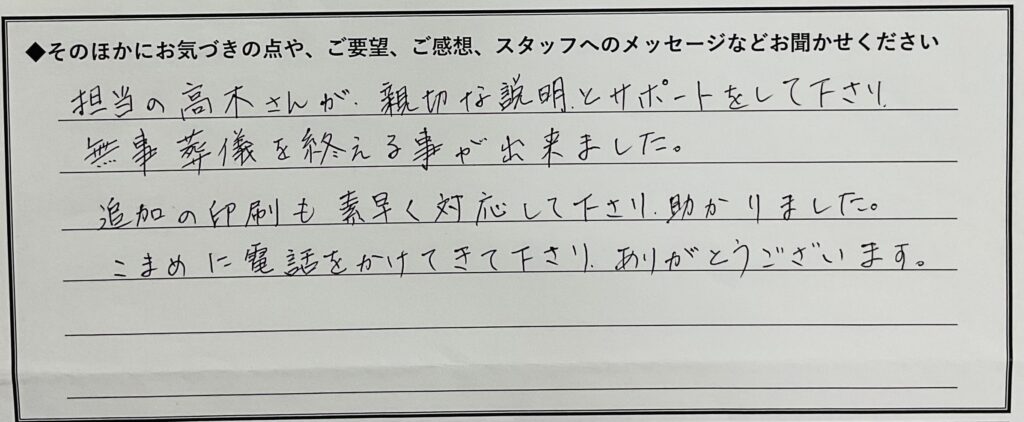 ◆そのほかにお気づきの点や、ご要望、ご感想、スタッフへのメッセージなどお聞かせください
担当の高木さんが、親切な説明、とサポートをして下さり、
無事葬儀を終える事が出来ました。
追加の印刷も素早く対応して下さり、助かりました。
こまめに電話をかけてきて下さり、ありがとうございます。